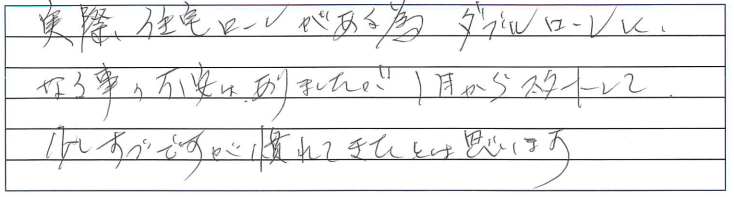 実際、住宅ローンがある為 ダブルローンに、
なる事の不安は、ありましたが 1月からスタートして、
少しずつですが慣れてきたとは思います